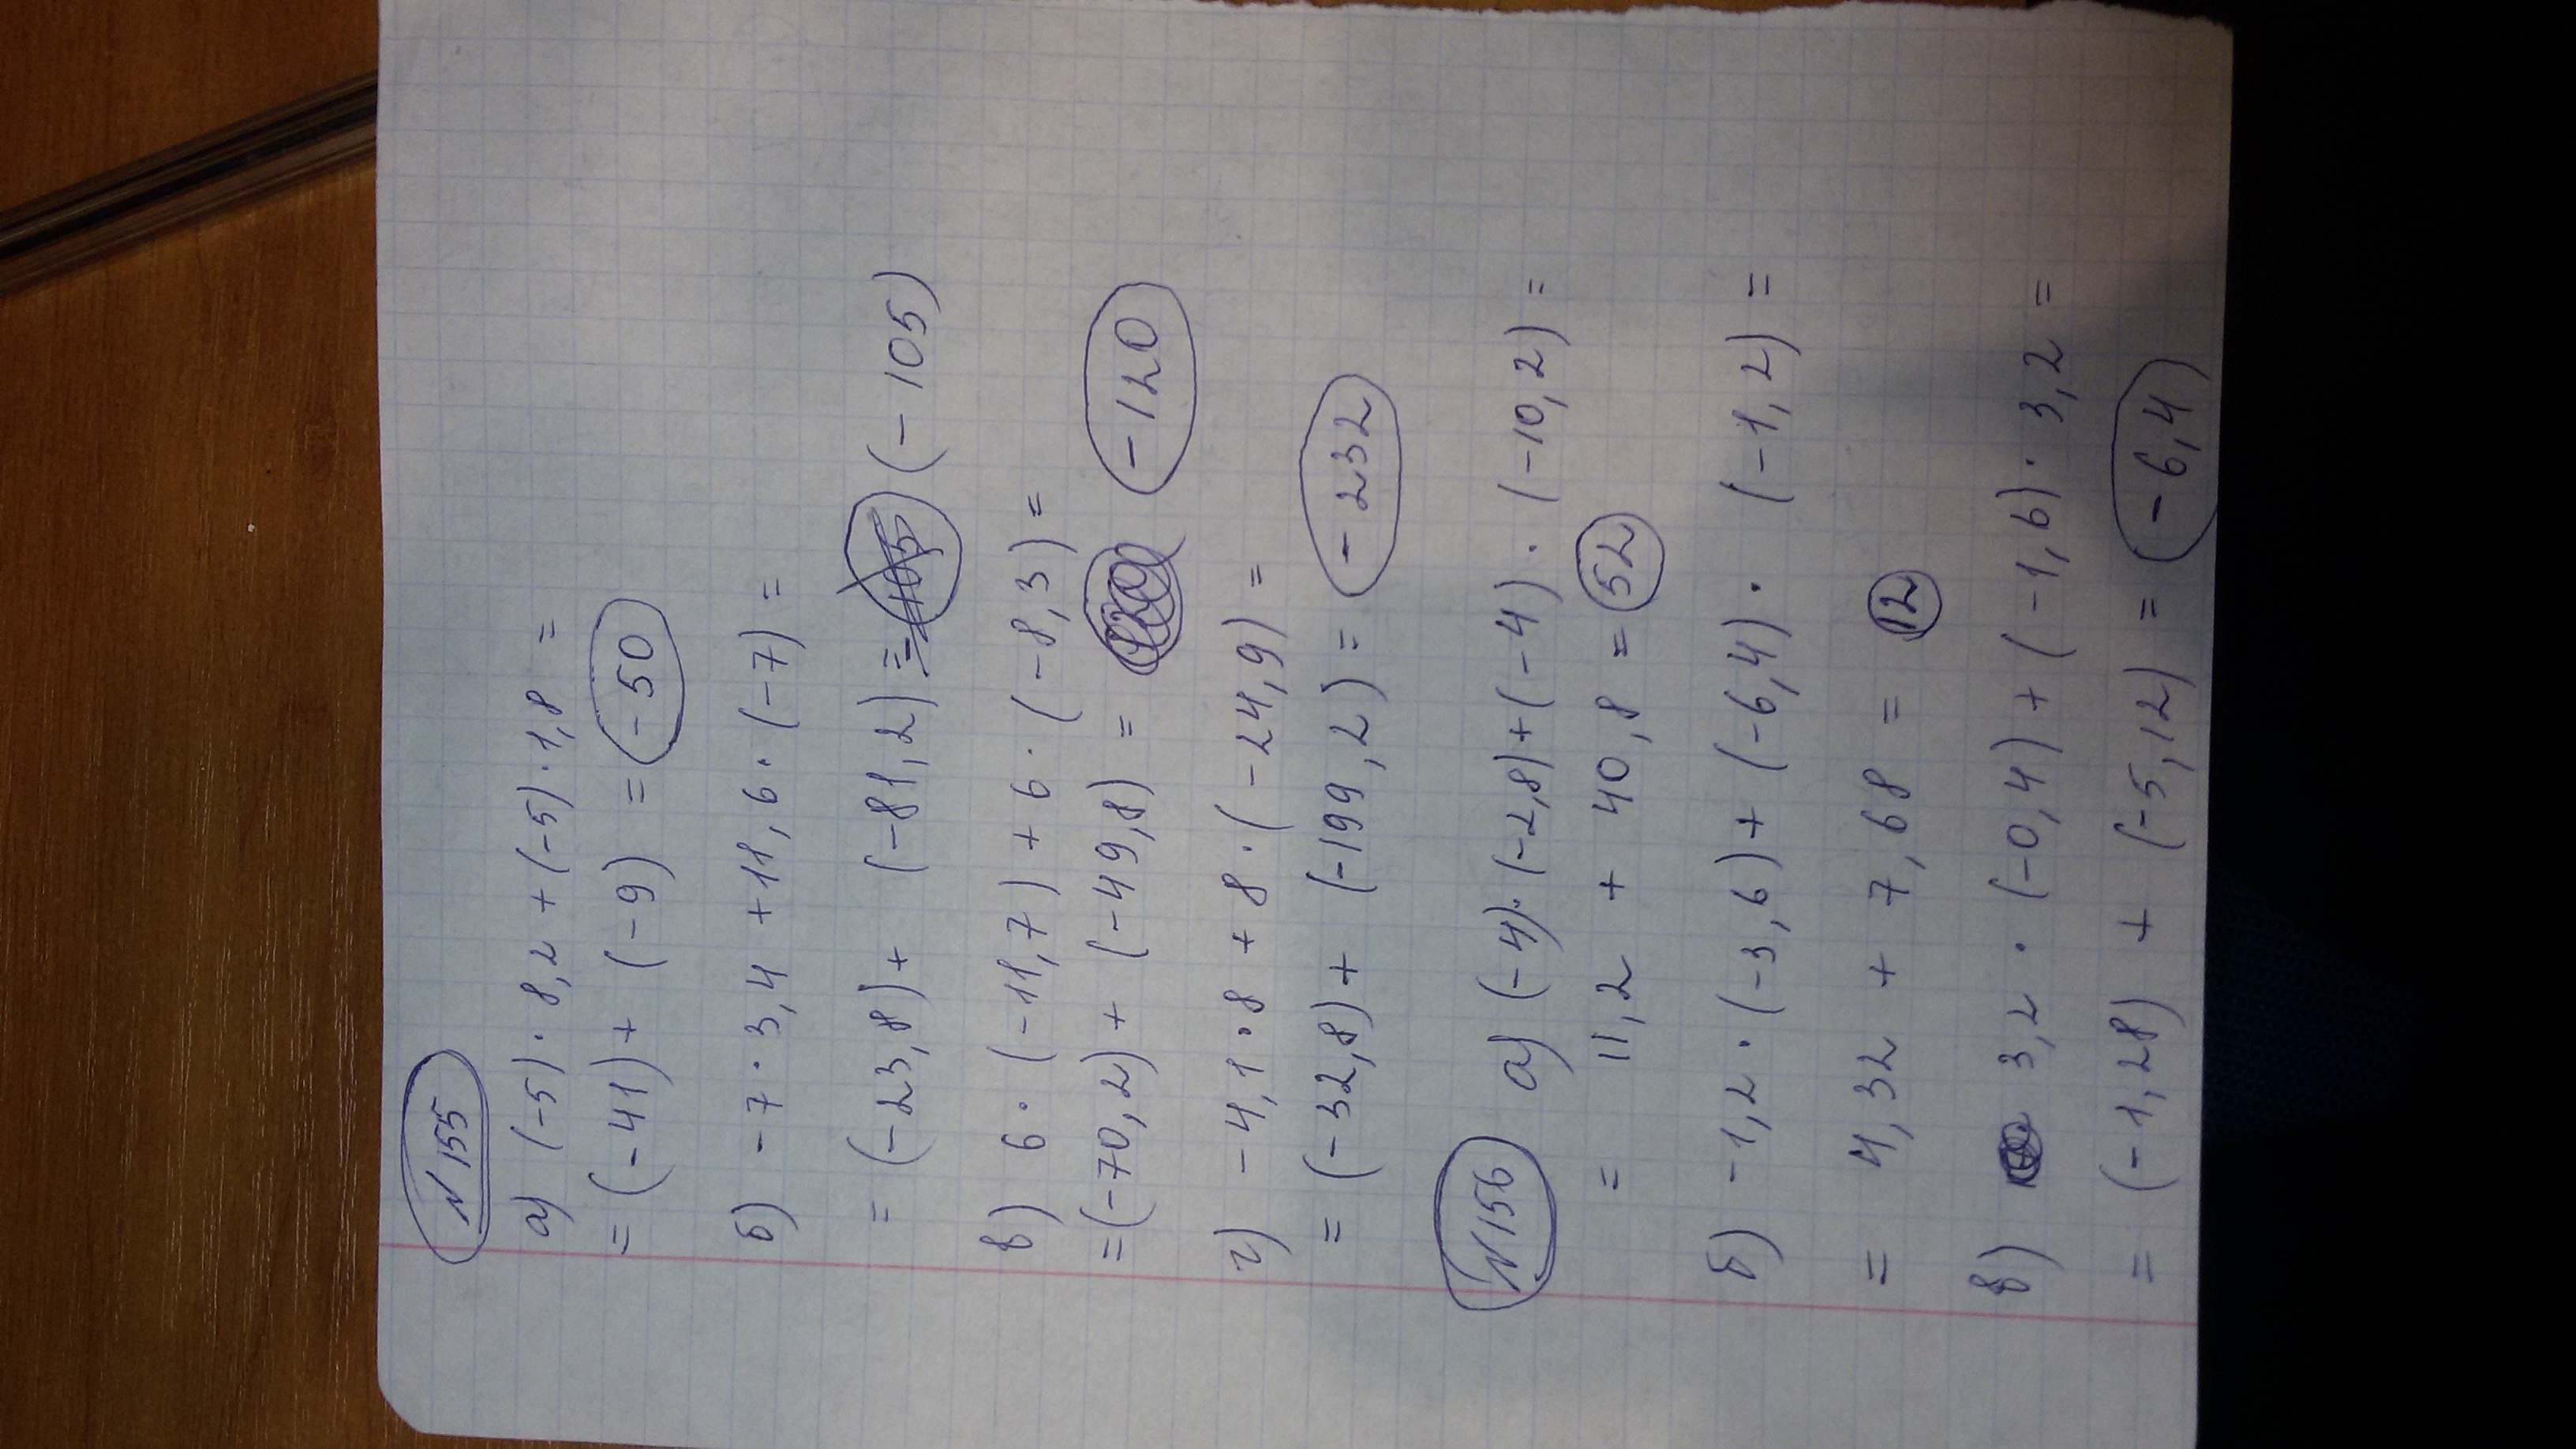 N 155
а) (-5) · 8,2 + (-5) · 1,8 =
= (-41) + (-9) = -50
б) -7 · 3,4 + 11,6 · (-7) =
= (-23,8) + (-81,2) = -105 (-105)
в) 6 · (-11,7) + 6 · (-8,3) =
= (-70,2) + (-49,8) = -120
г) -4,1 · 8 + 8 · (-24,9) =
= (-32,8) + (-199,2) = -232
N 156 а) (-4) · (-2,8) + (-4) · (-10,2) =
= 11,2 + 40,8 = 52
б) -1,2 · (-3,6) + (-6,4) · (-1,2) =
= 4,32 + 7,68 = 12
в) 3,2 · (-0,4) + (-1,6) · 3,2 =
= (-1,28) + (-5,12) = -6,4